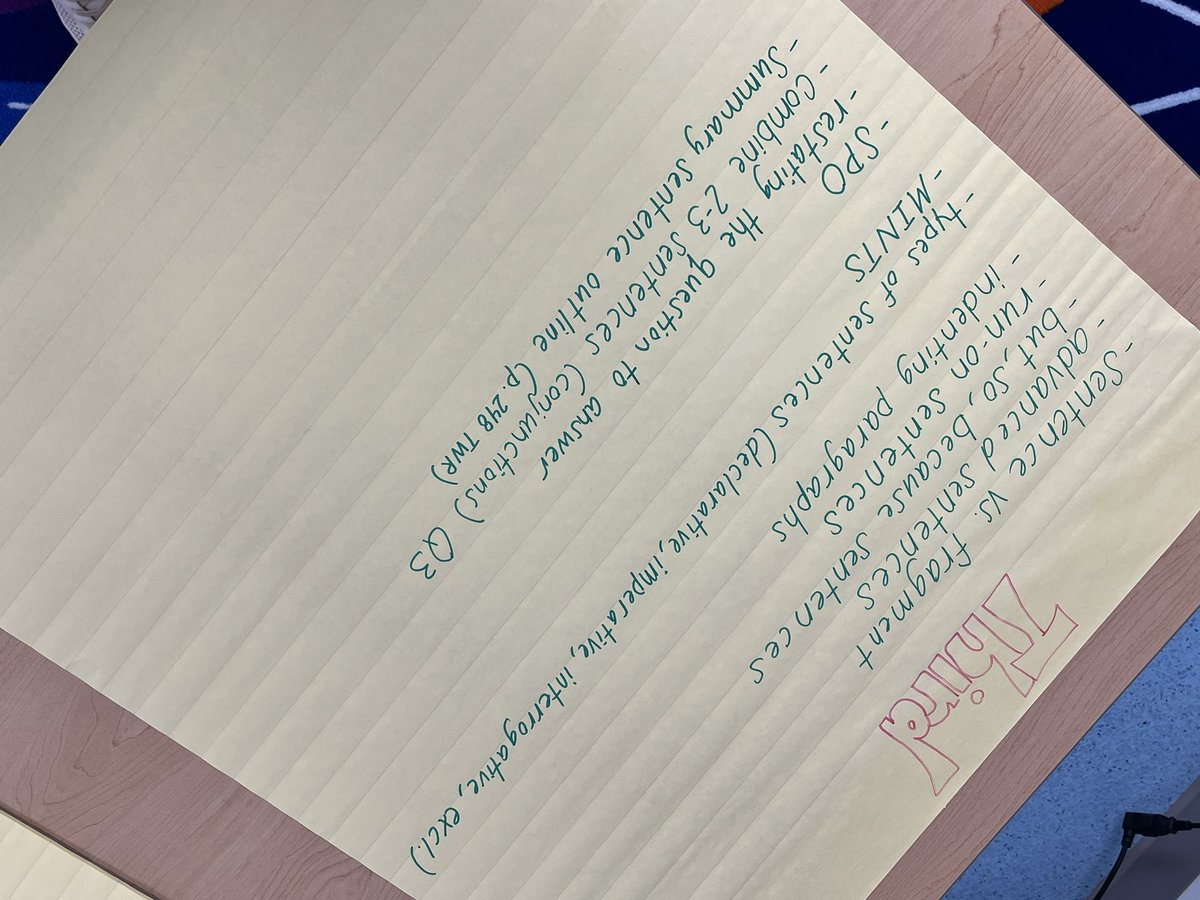 Third
- Sentence vs. fragment
- advanced sentences
- but, so, because sentences
- run-on sentences
- indenting paragraphs
- types of sentences (declarative, imperative, interrogative, excl.)
- MINTS
- SPO
- restating the question to answer
- Combine 2-3 sentences (conjunctions) Q3
- Summary sentence outline (p. 248 TWR)